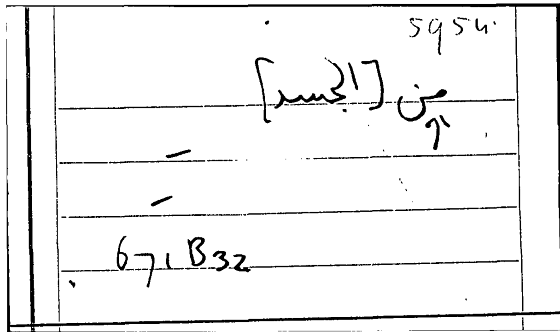 5954
من [الجسد]
671B32